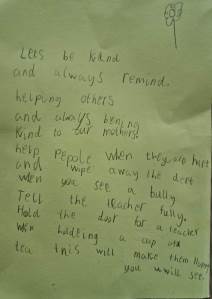 Lets be kind
and always remind.
helping others
and always bening
kind to our mothers.
help Pepole when they are hurt
and wipe away the dert
when you see a bully
Tell the teacher fully.
Hold the door for a teacher
when holding a cup of
tea this will make them happy
you will see!